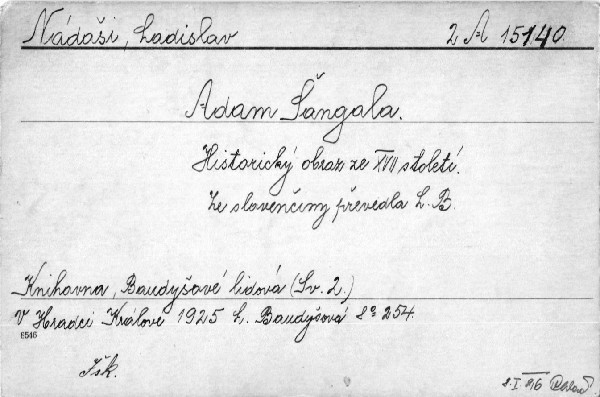 Nádáši, Ladislav 2 A 15140.
Adam Šangala.
Historický obraz ze XVII století.
Ze slovenčiny převedla L. B.
Knihovna, Baudyšové lidová (Sv. 2.)
V Hradci Králové 1925 L. Baudyšová 8° 254.
6546
Jšk.